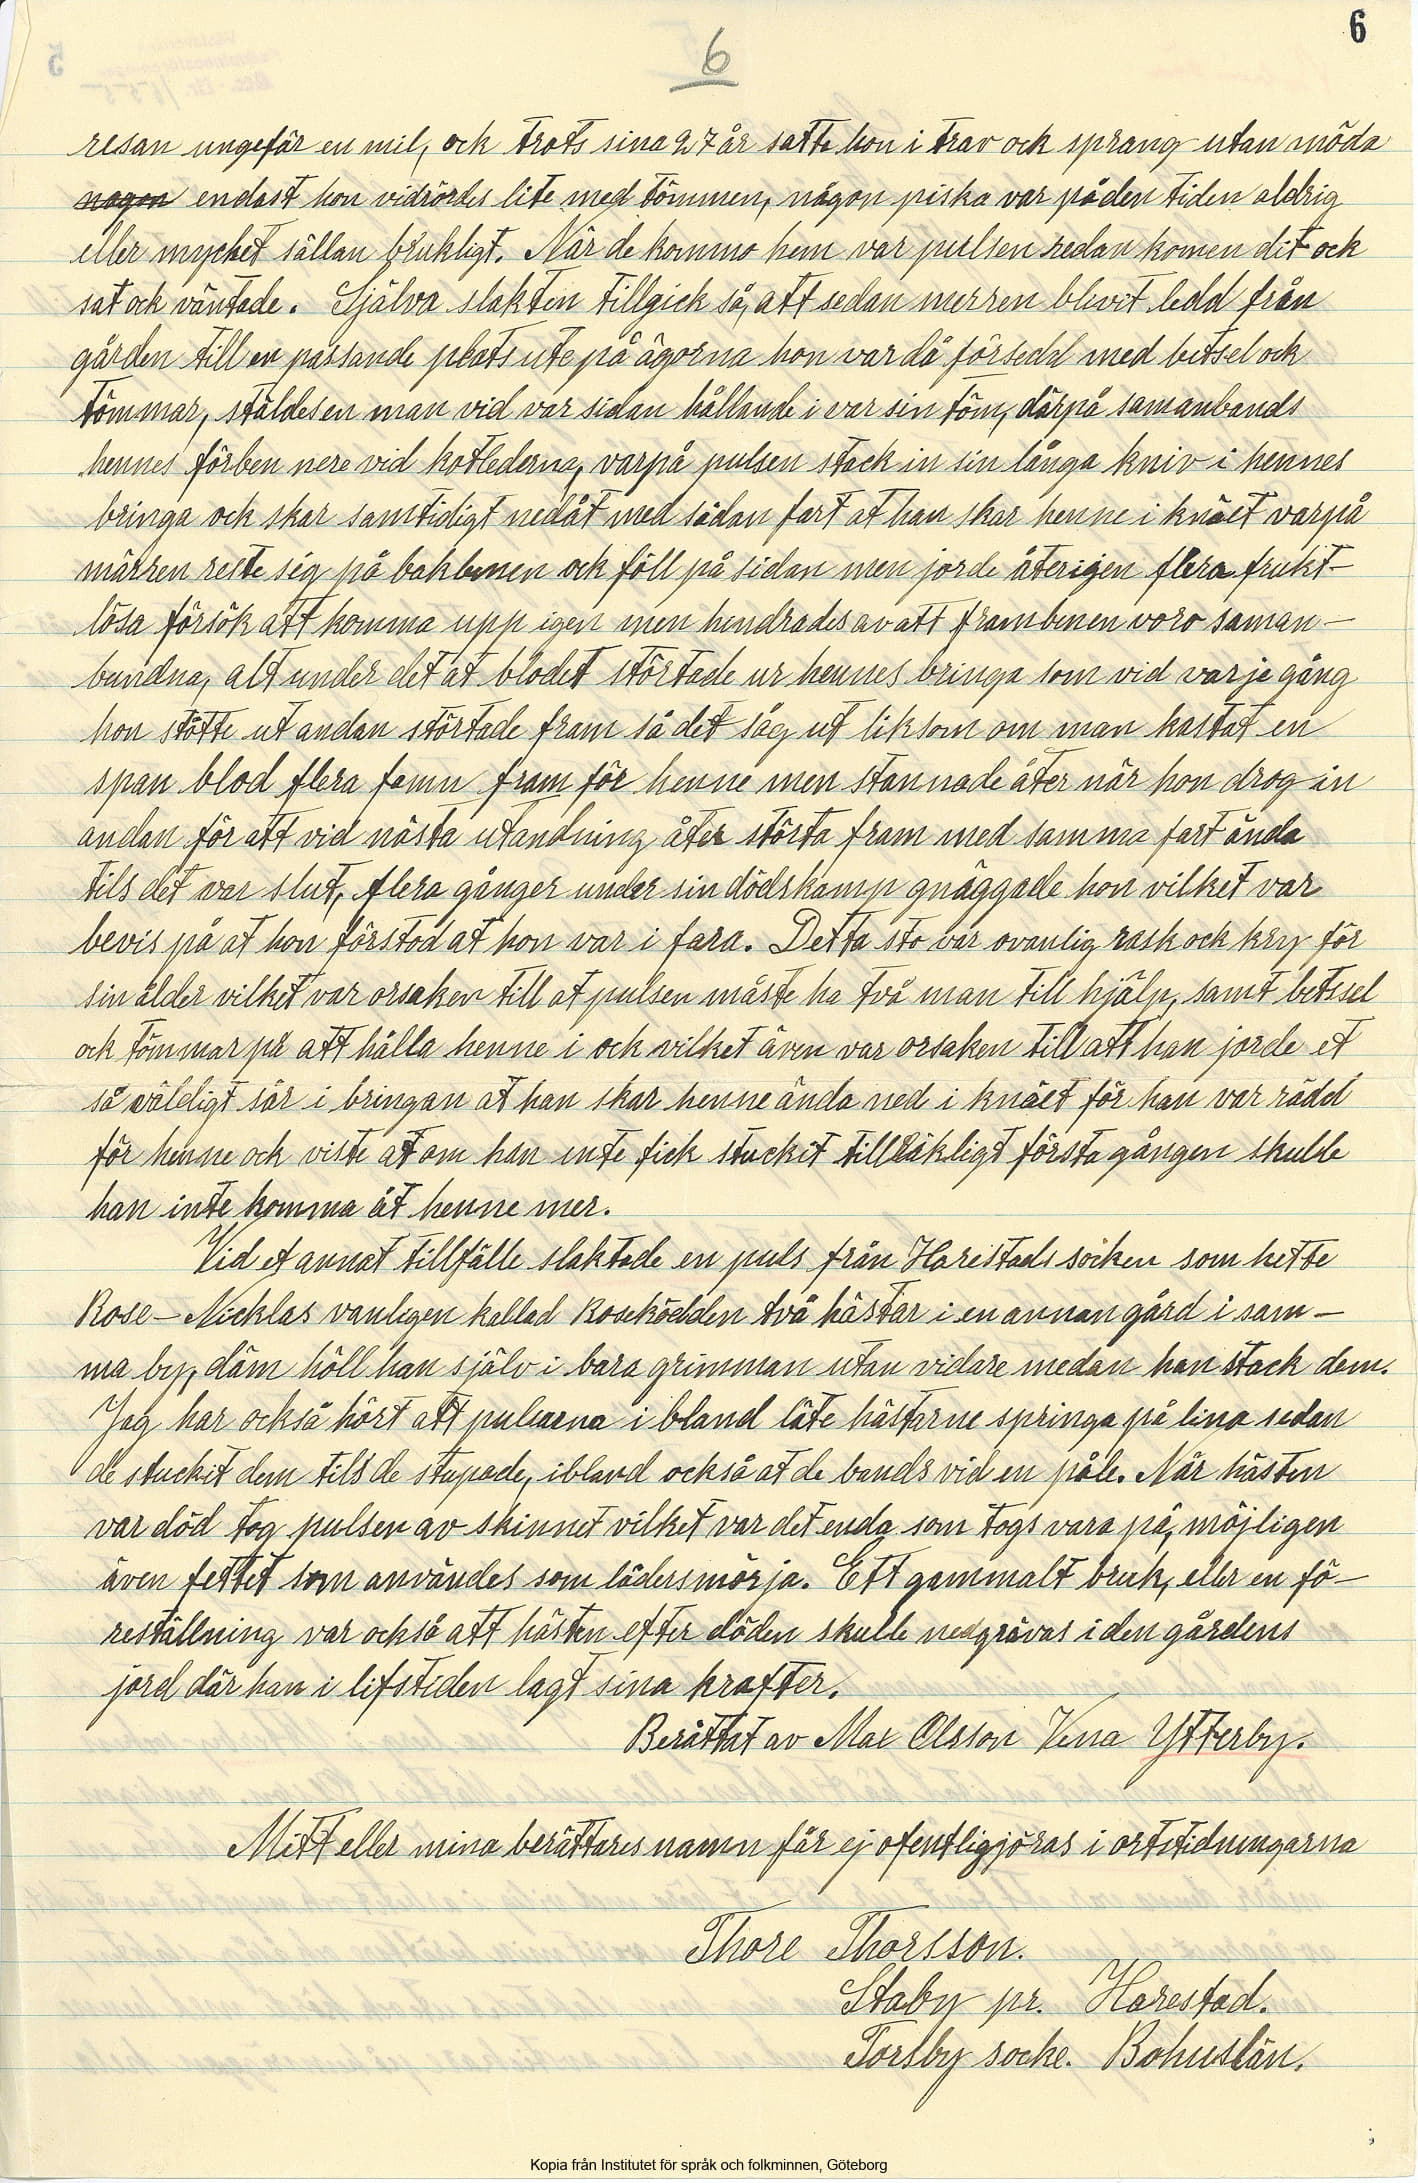 6
6
resan ungefär en mil, ock trots sina 27 år satte hon i trav ock sprang utan möda
nogon endast hon vidrördes lite med tömmen, någon piska var på den tiden aldrig
eller mycket sällan brukligt. När de kommo hem var pulsen redan komen dit ock
sat ock väntade. Själva slakten tillgick så, att sedan merren blevit ledd från
gården till en passande plats ute på ägorna hon var då försedd med betsel ock
tömmar, stäldes en man vid var sidan hållande i var sin töm, därpå samanbands
hennes förben nere vid kotlederna, varpå pulsen stack in sin långa kniv i hennes
bringa ock skar samtidigt nedåt med sådan fart at han skar henne i knäet varpå
märren reste sig på bakbenen ock föll på sidan men jorde återigen flera frukt-
lösa försök att komma upp igen men hendrades av att frambenen voro saman-
bundna, alt under det at blodet störtade ur hennes bringa som vid varje gång
hon stötte ut andan störtade fram så det såg ut liksom om man kastat en
span blod flera famn fram för henne men stannade åter när hon drog in
andan för att vid nästa utandning åter störta fram med samma fart ända
tils det var slut, flera gånger under sin dödskamp gnäggade hon vilket var
bevis på at hon förstod at hon var i fara. Detta sto var ovanlig rask ock kry för
sin ålder vilket var orsaken till at pulsen måste ha två man till hjälp, samt betssel
ock tömmar på att hålla henne i ock vilket även var orsaken till att han jorde et
så väldigt sår i bringan at han skar henne ända ned i knäet för han var rädd
för henne ock viste at om han inte fick stuckit tilläkligt första gången skulle
han inte komma åt henne mer.
Vid et annat tillfälle slaktade en puls från Harestads socken som hette
Rose-Nicklas vanligen kallad Roseködden två hästar i en annan gård i sam-
ma by, däm höll han själv i bara grimman utan vidare medan han stack dem.
Jag har också hört att pulsarna i bland läte hästarne springa på lina sedan
de stuckit dem tils de stupade, ibland också at de bands vid en påle. När hästen
var död tog pulsen av skinnet vilket var det enda som togs vara på, möjligen
även fettet som användes som lädersmörja. Ett gammalt bruk, eller en fö-
reställning var också att hästen efter döden skulle nedgrävas i den gårdens
jord där han i lifstiden lagt sina krafter.
Berättat av Max Olsson Vena Ytterby.
Mitt eller mina berättares namn får ej ofentligjöras i ortstidningarna
Thore Thorsson.
Staby pr. Harestad.
Torsby socke. Bohuslän.
Kopia från Institutet för språk och folkminnen, Göteborg